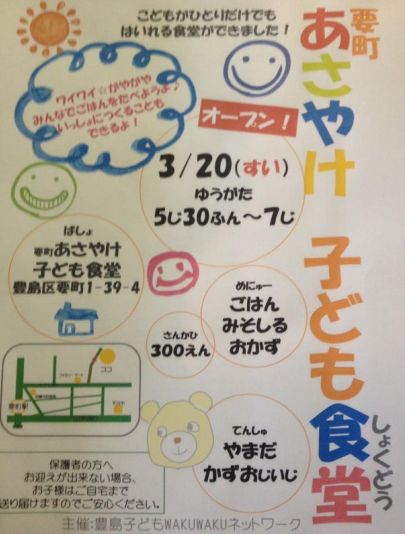 こどもがひとりだけでも
はいれる食堂ができました！
要町
あさやけ 子ども食堂
しょくどう
ワイワイ☆がやがや
みんなでごはんをたべようよ♪
いっしょにつくることも
できるよ！
オープン！
3/20(すい)
ゆうがた
5じ30ふん～7じ
ばしょ
要町あさやけ
子ども食堂
豊島区要町1-39-4
めにゅー
ごはん
みそしる
おかず
さんかひ
300えん
ココ
要町駅
てんしゅ
やまだ
かずおじいじ
保護者の方へ
お迎えが出来ない場合、
お子様はご自宅まで
送り届けますのでご安心ください。
主催:豊島子どもWAKUWAKUネットワーク